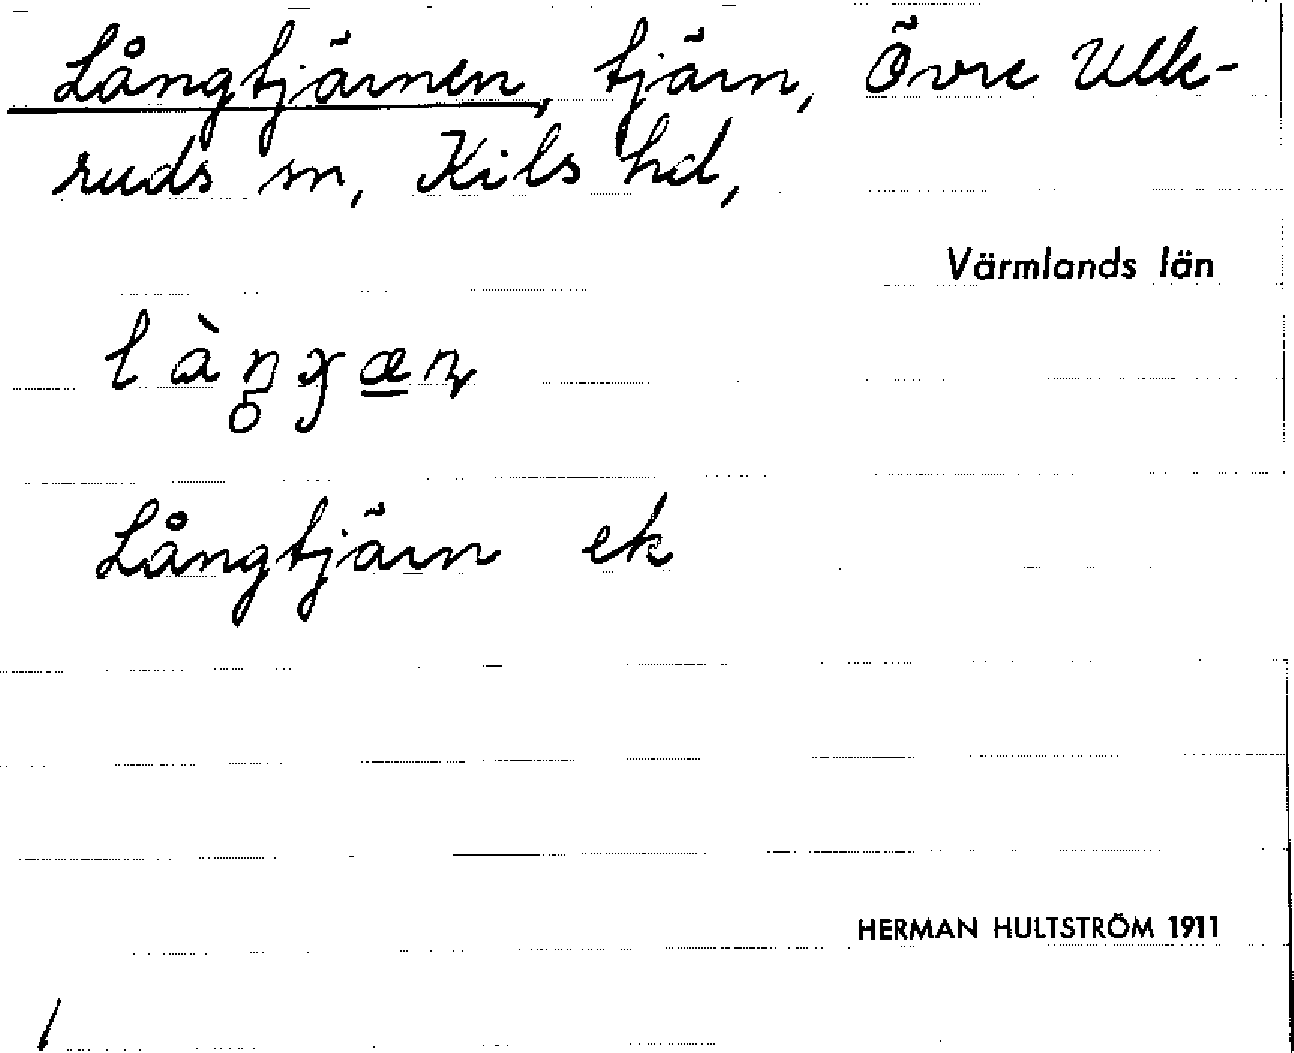 Långtjärnen, tjärn, Övre Ulle-
ruds sn, Kils hd,
Värmlands län
Långtjärn ek
HERMAN HULTSTRÖM 1911